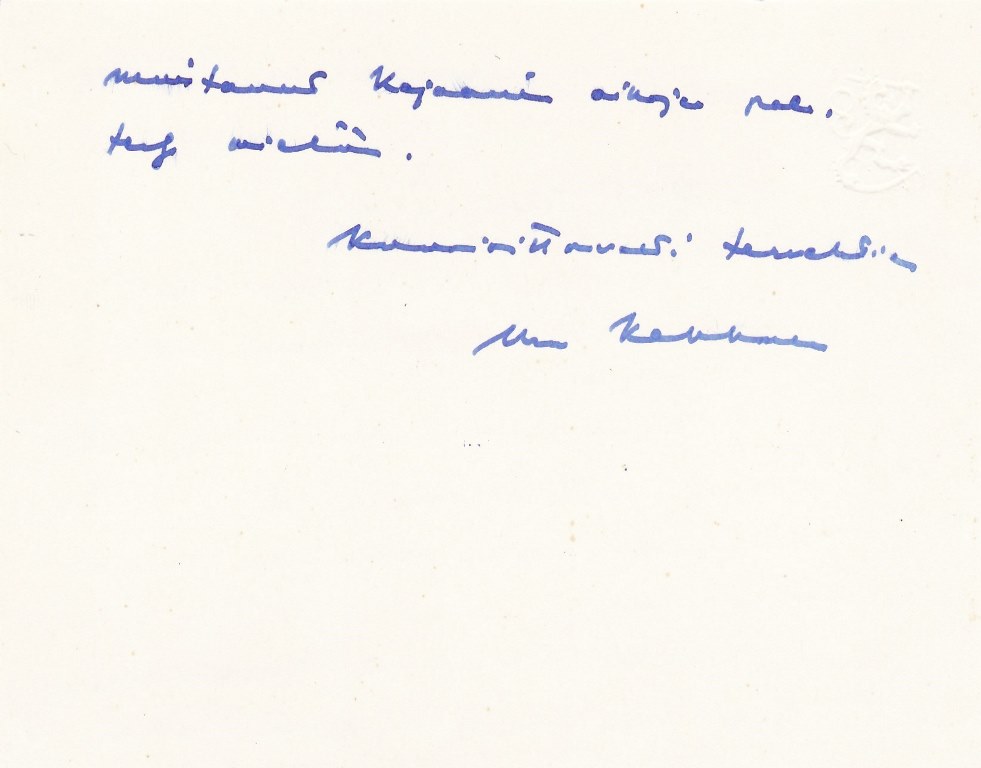 muistanut Kajaanin aikoja
mielin.
Kunnioittavasti tervehtien
Urho Kekkonen